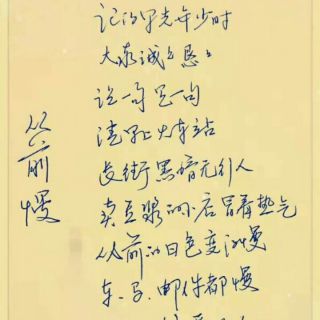 从前慢
记得早先年少时
大家诚々恳々
说一句是一句
清早上火车站
长街黑暗无行人
卖豆浆的小店冒着热气
从前的日色变得慢
车、马、邮件都慢